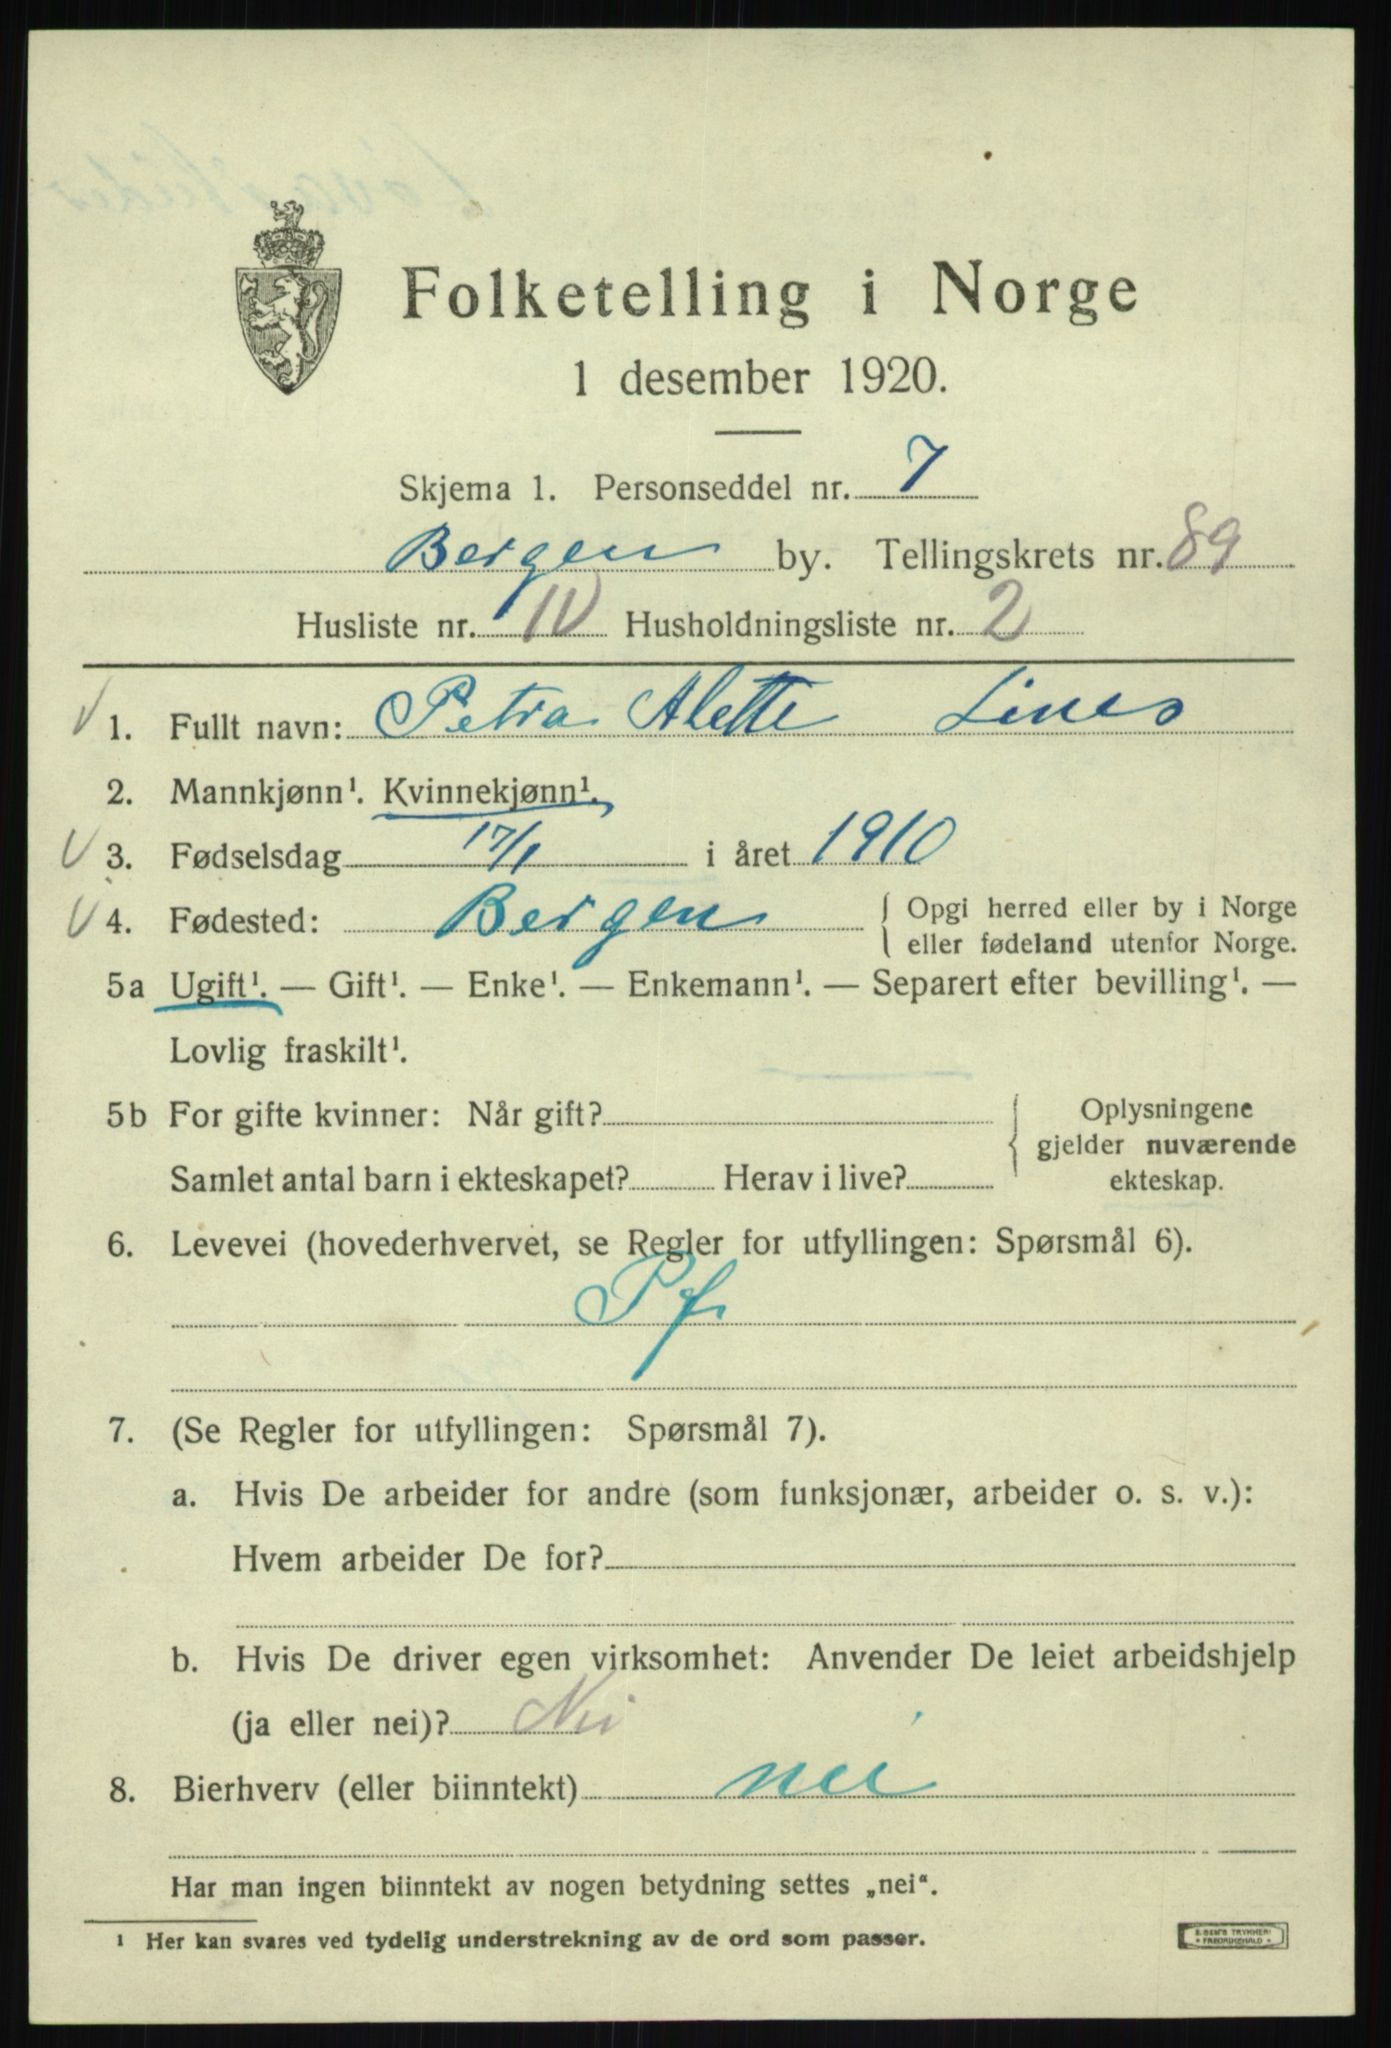 Folketelling i Norge
1 desember 1920.
Skjema 1. Personseddel nr. 7
Bergen by. Tellingskrets nr. 89
Husliste nr. 10 Husholdningsliste nr. 2
1. Fullt navn: Petra Alette Lines
2. Mannkjønn¹. Kvinnekjønn¹.
3. Fødselsdag 17/1 i året 1910
4. Fødested: Bergen { Opgi herred eller by i Norge
eller fødeland utenfor Norge.
5a Ugift¹. — Gift¹. — Enke¹. — Enkemann¹. — Separert efter bevilling¹. —
Lovlig fraskilt¹.
5b For gifte kvinner: Når gift? { Oplysningene
gjelder nuværende
Samlet antal barn i ekteskapet? Herav i live? ekteskap.
6. Levevei (hovederhvervet, se Regler for utfyllingen: Spørsmål 6).
Pf
7. (Se Regler for utfyllingen: Spørsmål 7).
a. Hvis De arbeider for andre (som funksjonær, arbeider o. s. v.):
Hvem arbeider De for?
b. Hvis De driver egen virksomhet: Anvender De leiet arbeidshjelp
(ja eller nei)? Nei
8. Bierhverv (eller biinntekt) nei
Har man ingen biinntekt av nogen betydning settes „nei“.
¹ Her kan svares ved tydelig understrekning av de ord som passer.